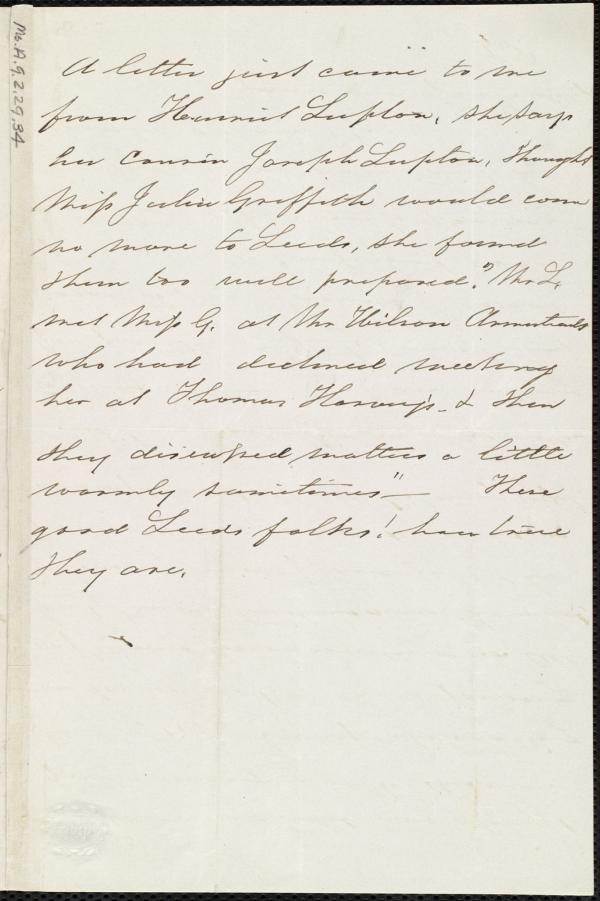 Ms.A.9.2.29.34
A letter just came to me
from Henriet Lupton, she says
her cousin Joseph Lupton, "thought
Miss Julia Griffith would come
no more to Leeds, she found
them too well prepared." Mr L.
met Miss G. at Mr Wilson Armistead's
who had declined meeting
her at Thomas Harvey's. & then
they discussed matters a little
warmly sometimes" — These
good Leeds folks! how true
they are.